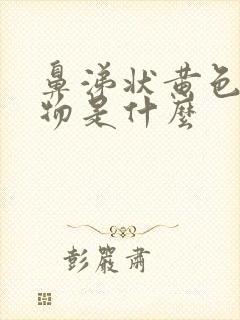 鼻涕状黄色
物是什麼
彭嚴肅